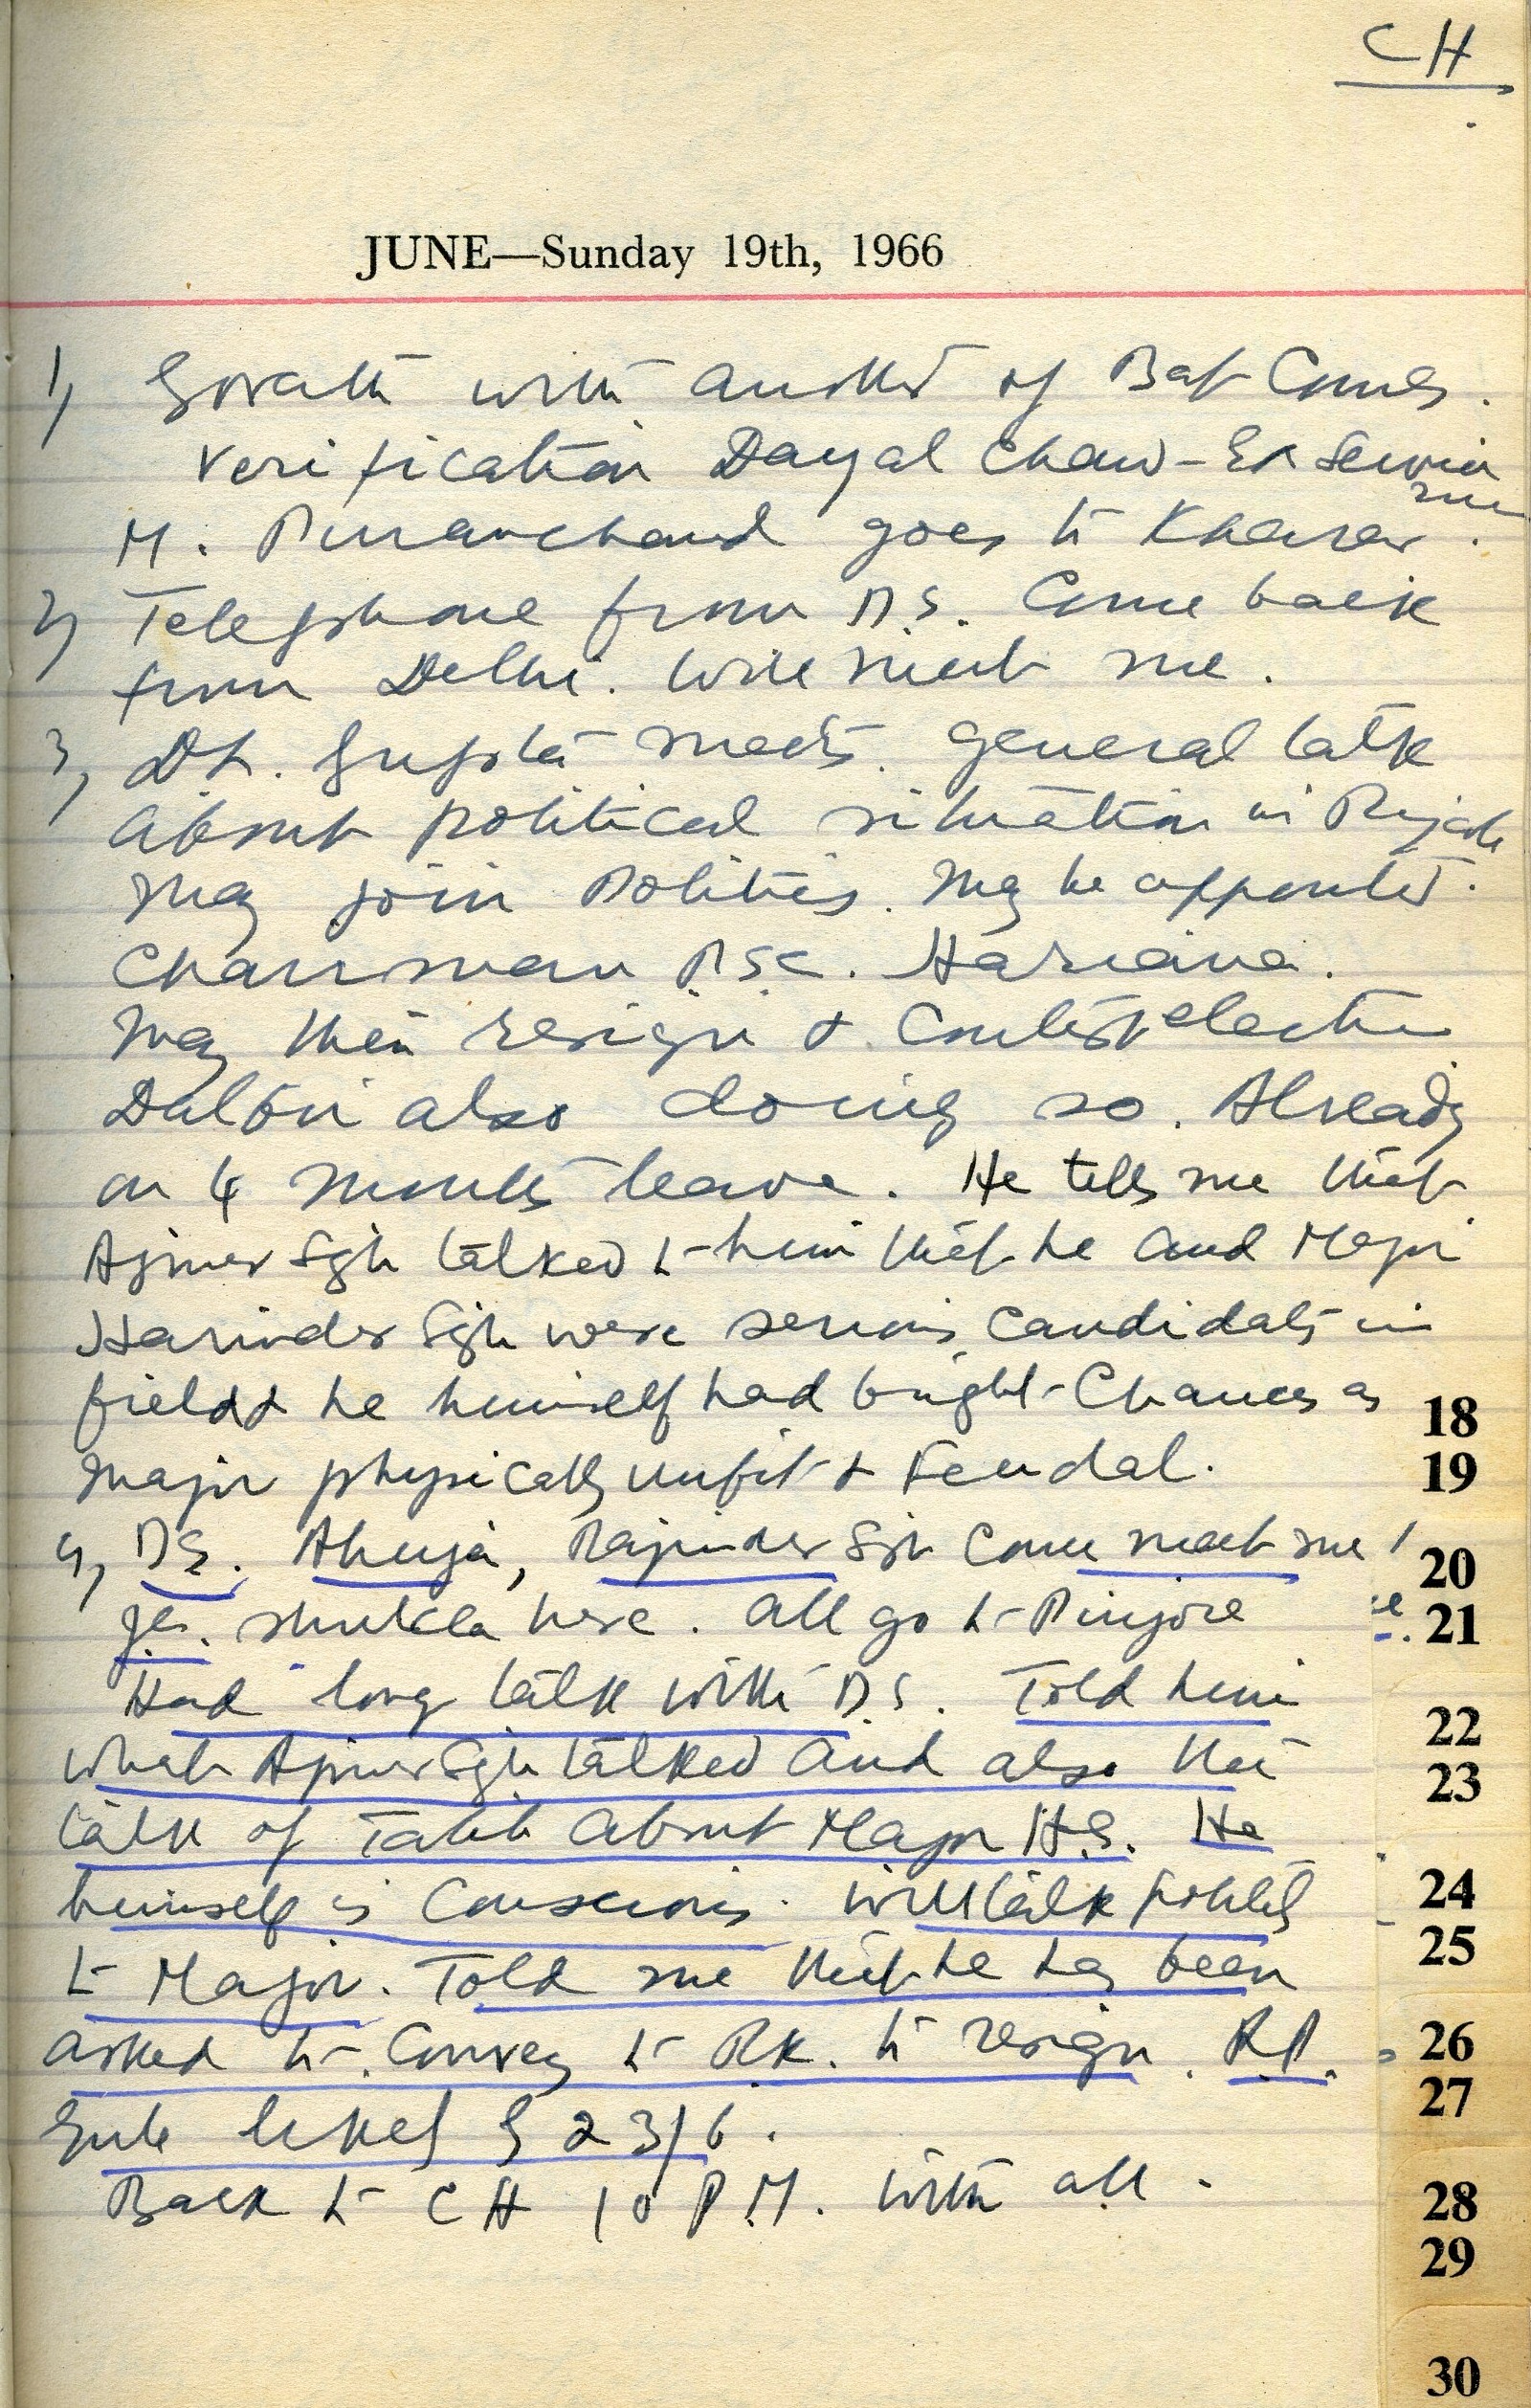 CH
JUNE—Sunday 19th, 1966
1) with of Bat Comes.
Verification Dayal Chand - Ex Service
men
M. Puranchand goes to Kharar.
2) Telephone from D.S. Come back
from Delhi. Will meet me.
3) Dr. Gupta meets. General talk
about political situation in Punjab
May join Politics. May be appointed.
Chairman P.S.C. Hariana.
May then resign & Contest election
also doing so. Already
on 4 months leave. He tells me that
Ajmer Sgh talked to him that he and Major
Harinder Sgh were serious candidates in
field & he himself had bright Chances as
Major physically unfit & Feudal.
4) D.S. Ahuja, Rajinder Sgh Come meet me
Shukla here. All go to Pinjore
Had long talk with D.S. Told him
what Ajmer Sgh talked and also the
talk of Talib about Major H.S. He
himself is Conscious. Will talk politely
to Major. Told me that he has been
asked to Convey to R.K. to resign. R.P.
likely 23/6.
Back to CH 10 P.M. with all.
18
19
20
21
22
23
24
25
26
27
28
29
30